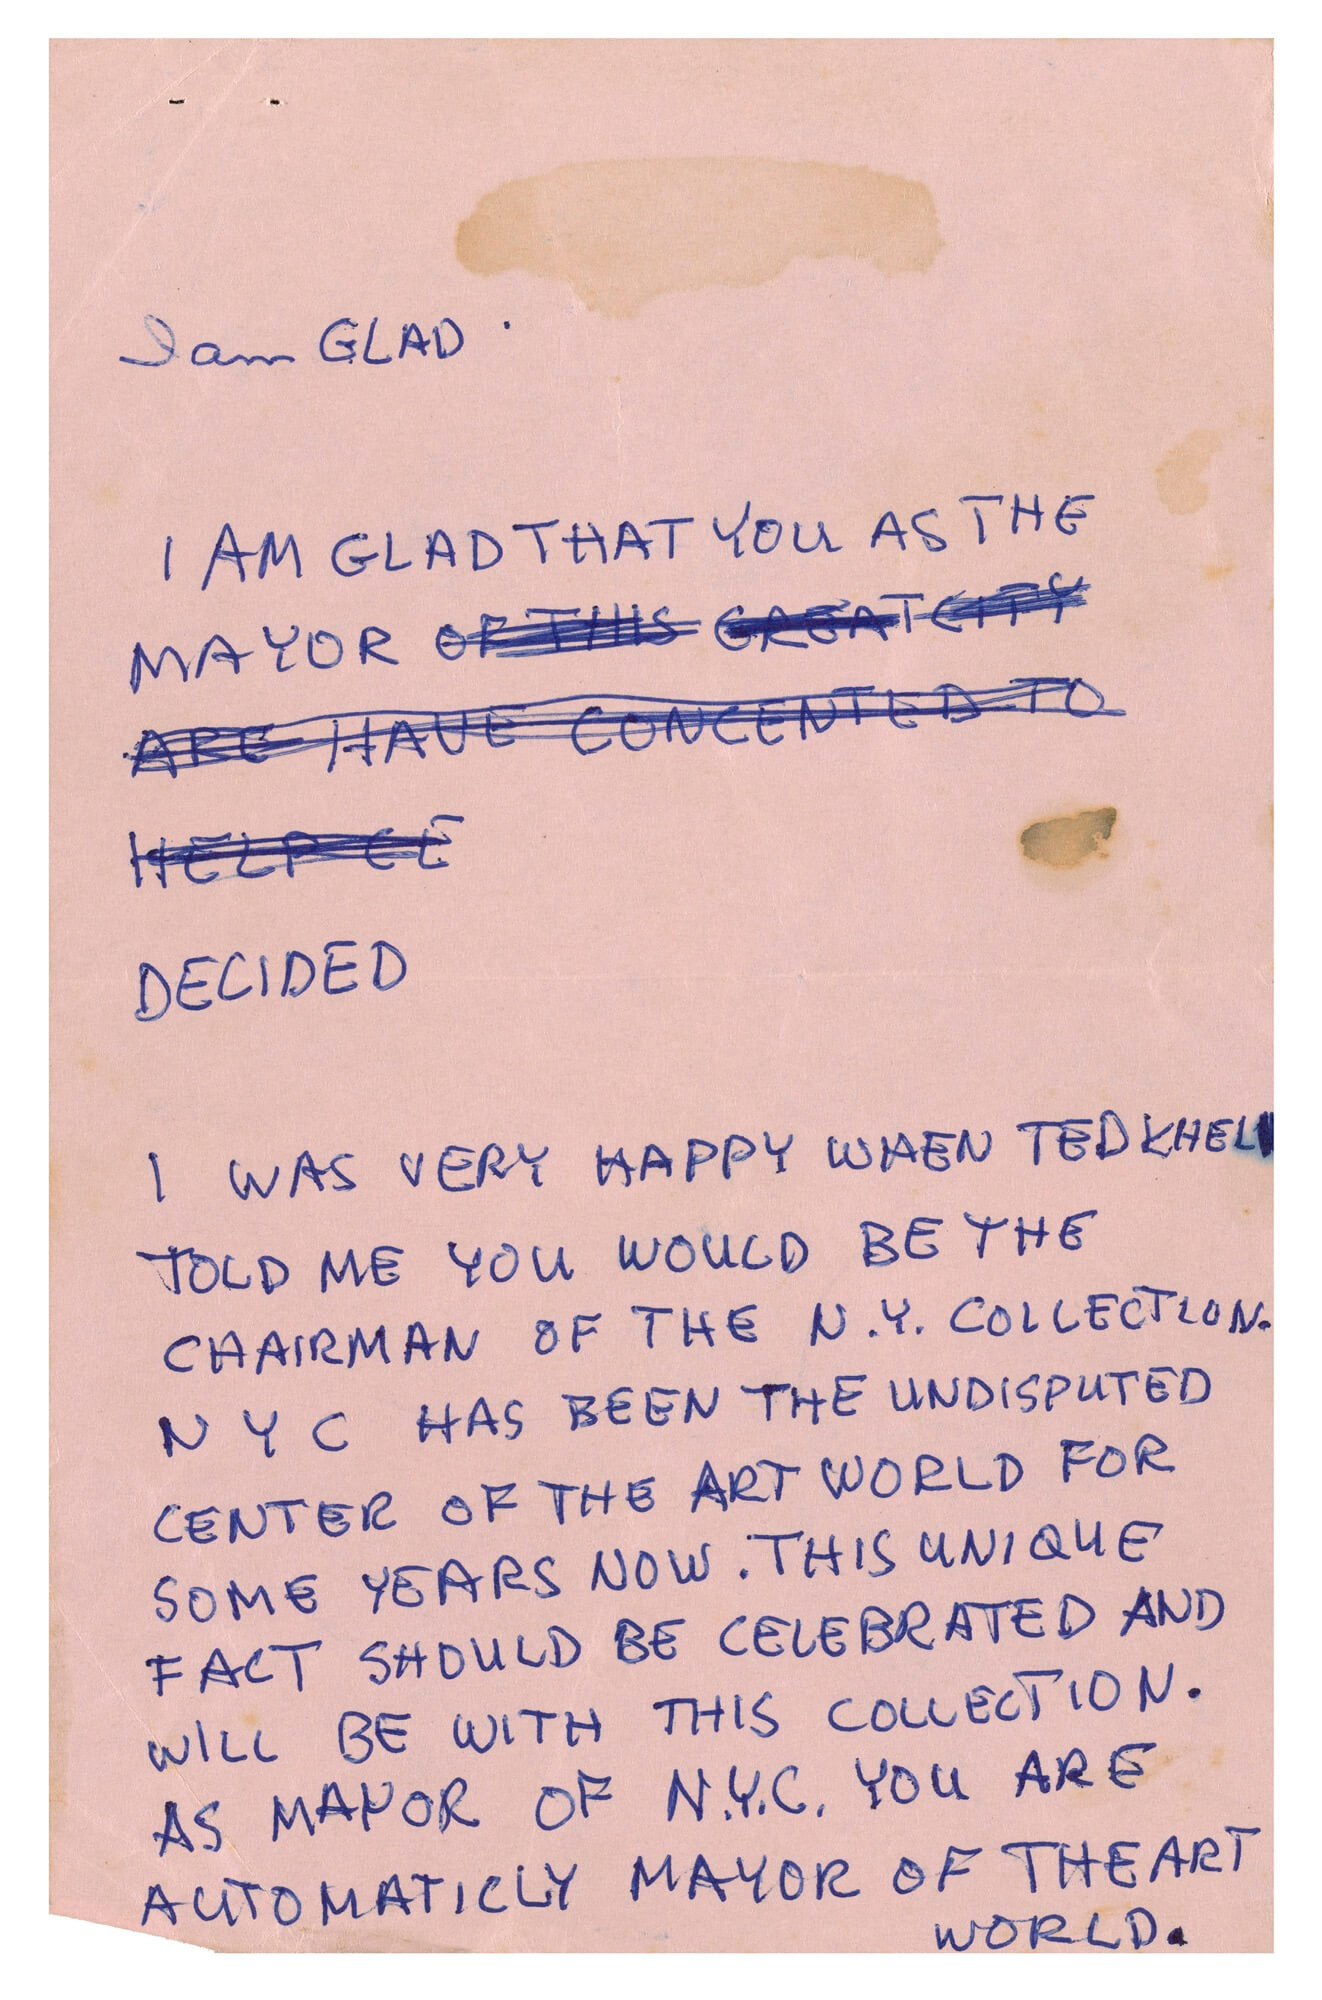 I am GLAD.
I AM GLAD THAT YOU AS THE
MAYOR OF THIS GREAT CITY
ARE HAVE CONCENTED TO
HELP CE
DECIDED
I WAS VERY HAPPY WHEN TED KHEL
TOLD ME YOU WOULD BE THE
CHAIRMAN OF THE N.Y. COLLECTION.
N Y C HAS BEEN THE UNDISPUTED
CENTER OF THE ART WORLD FOR
SOME YEARS NOW. THIS UNIQUE
FACT SHOULD BE CELEBRATED AND
WILL BE WITH THIS COLLECTION.
AS MAYOR OF N.Y.C. YOU ARE
AUTOMATICLY MAYOR OF THE ART
WORLD.